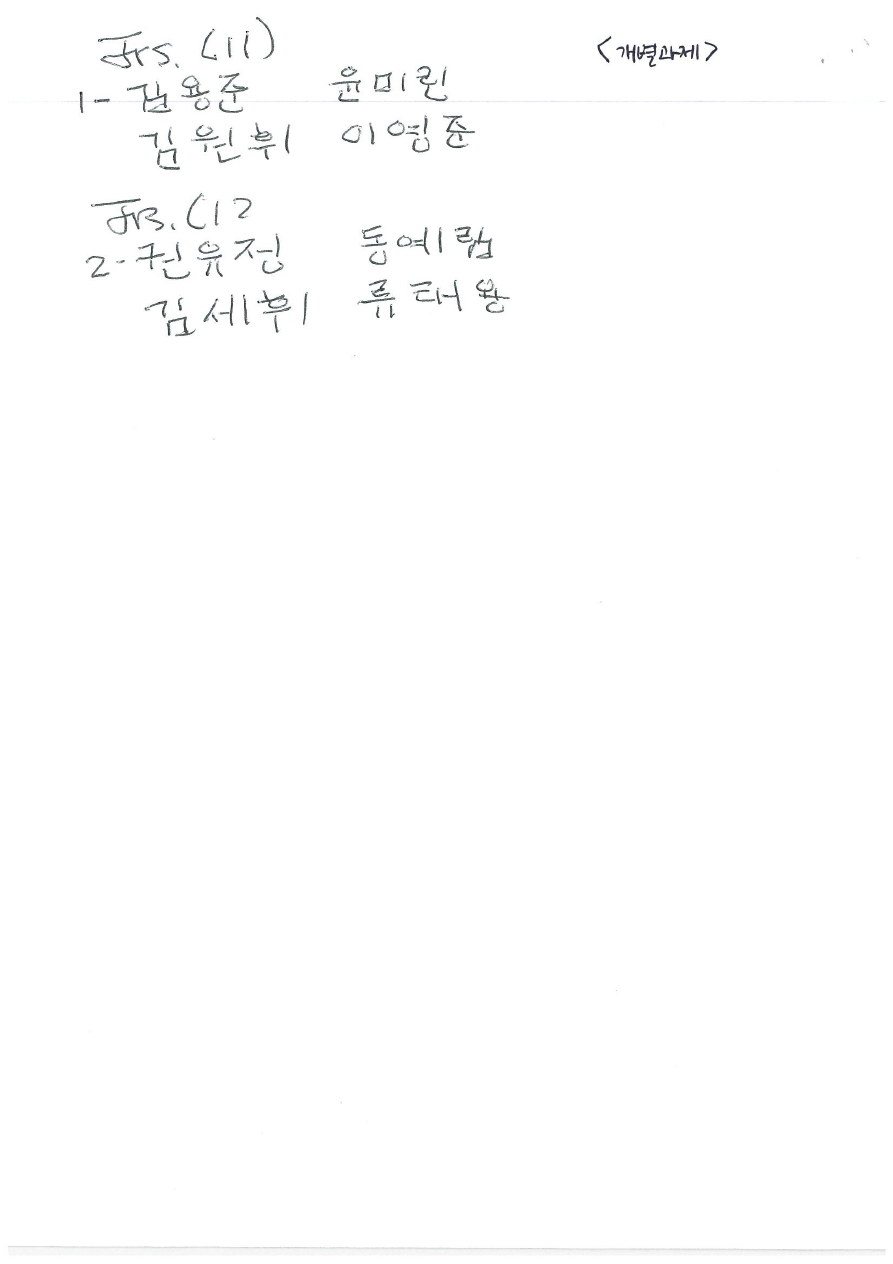 Jrs. (11)
<개별과제>
1- 김용준 윤미린
김원휘 이영준
Jrs. (12
2- 권유정 동예림
김세휘 류태용